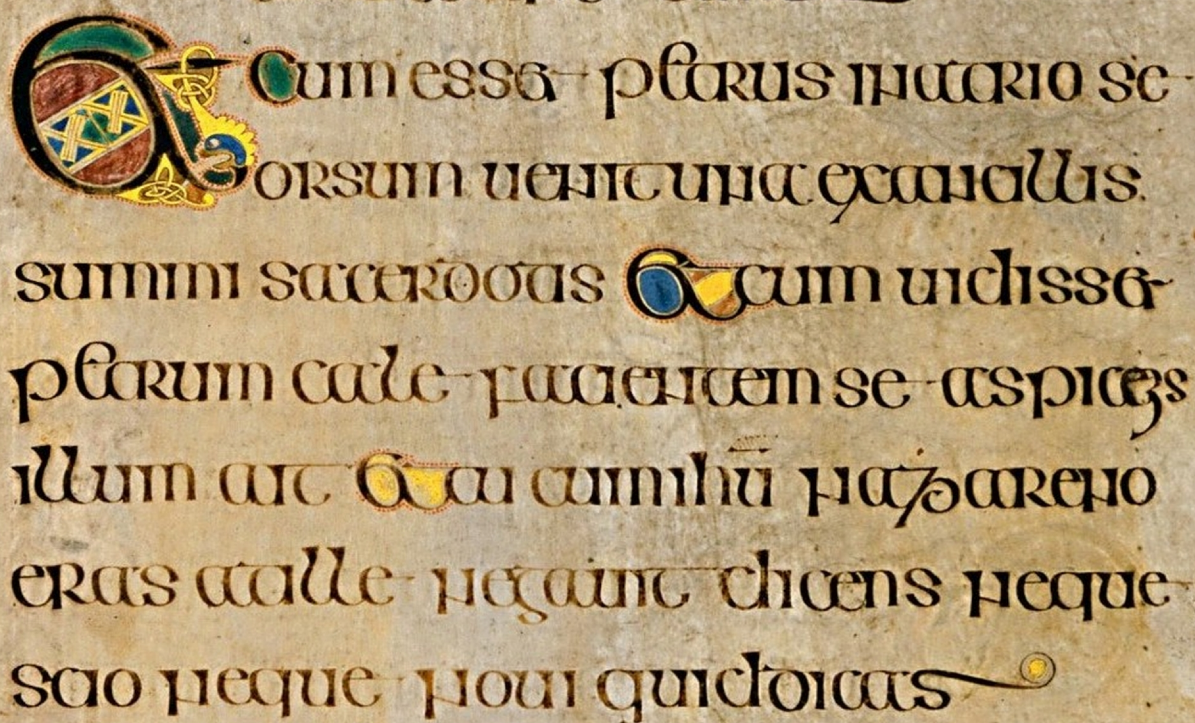 Et cum esset petrus inatrio se
orsum uenit una exancillis
summi sacerdotis Et cum uidisset
petrum calefacientem se aspiciens
illum ait Et tu cum ihū nazareno
eras atille negauit dicens neque
scio neque noui quid dicas